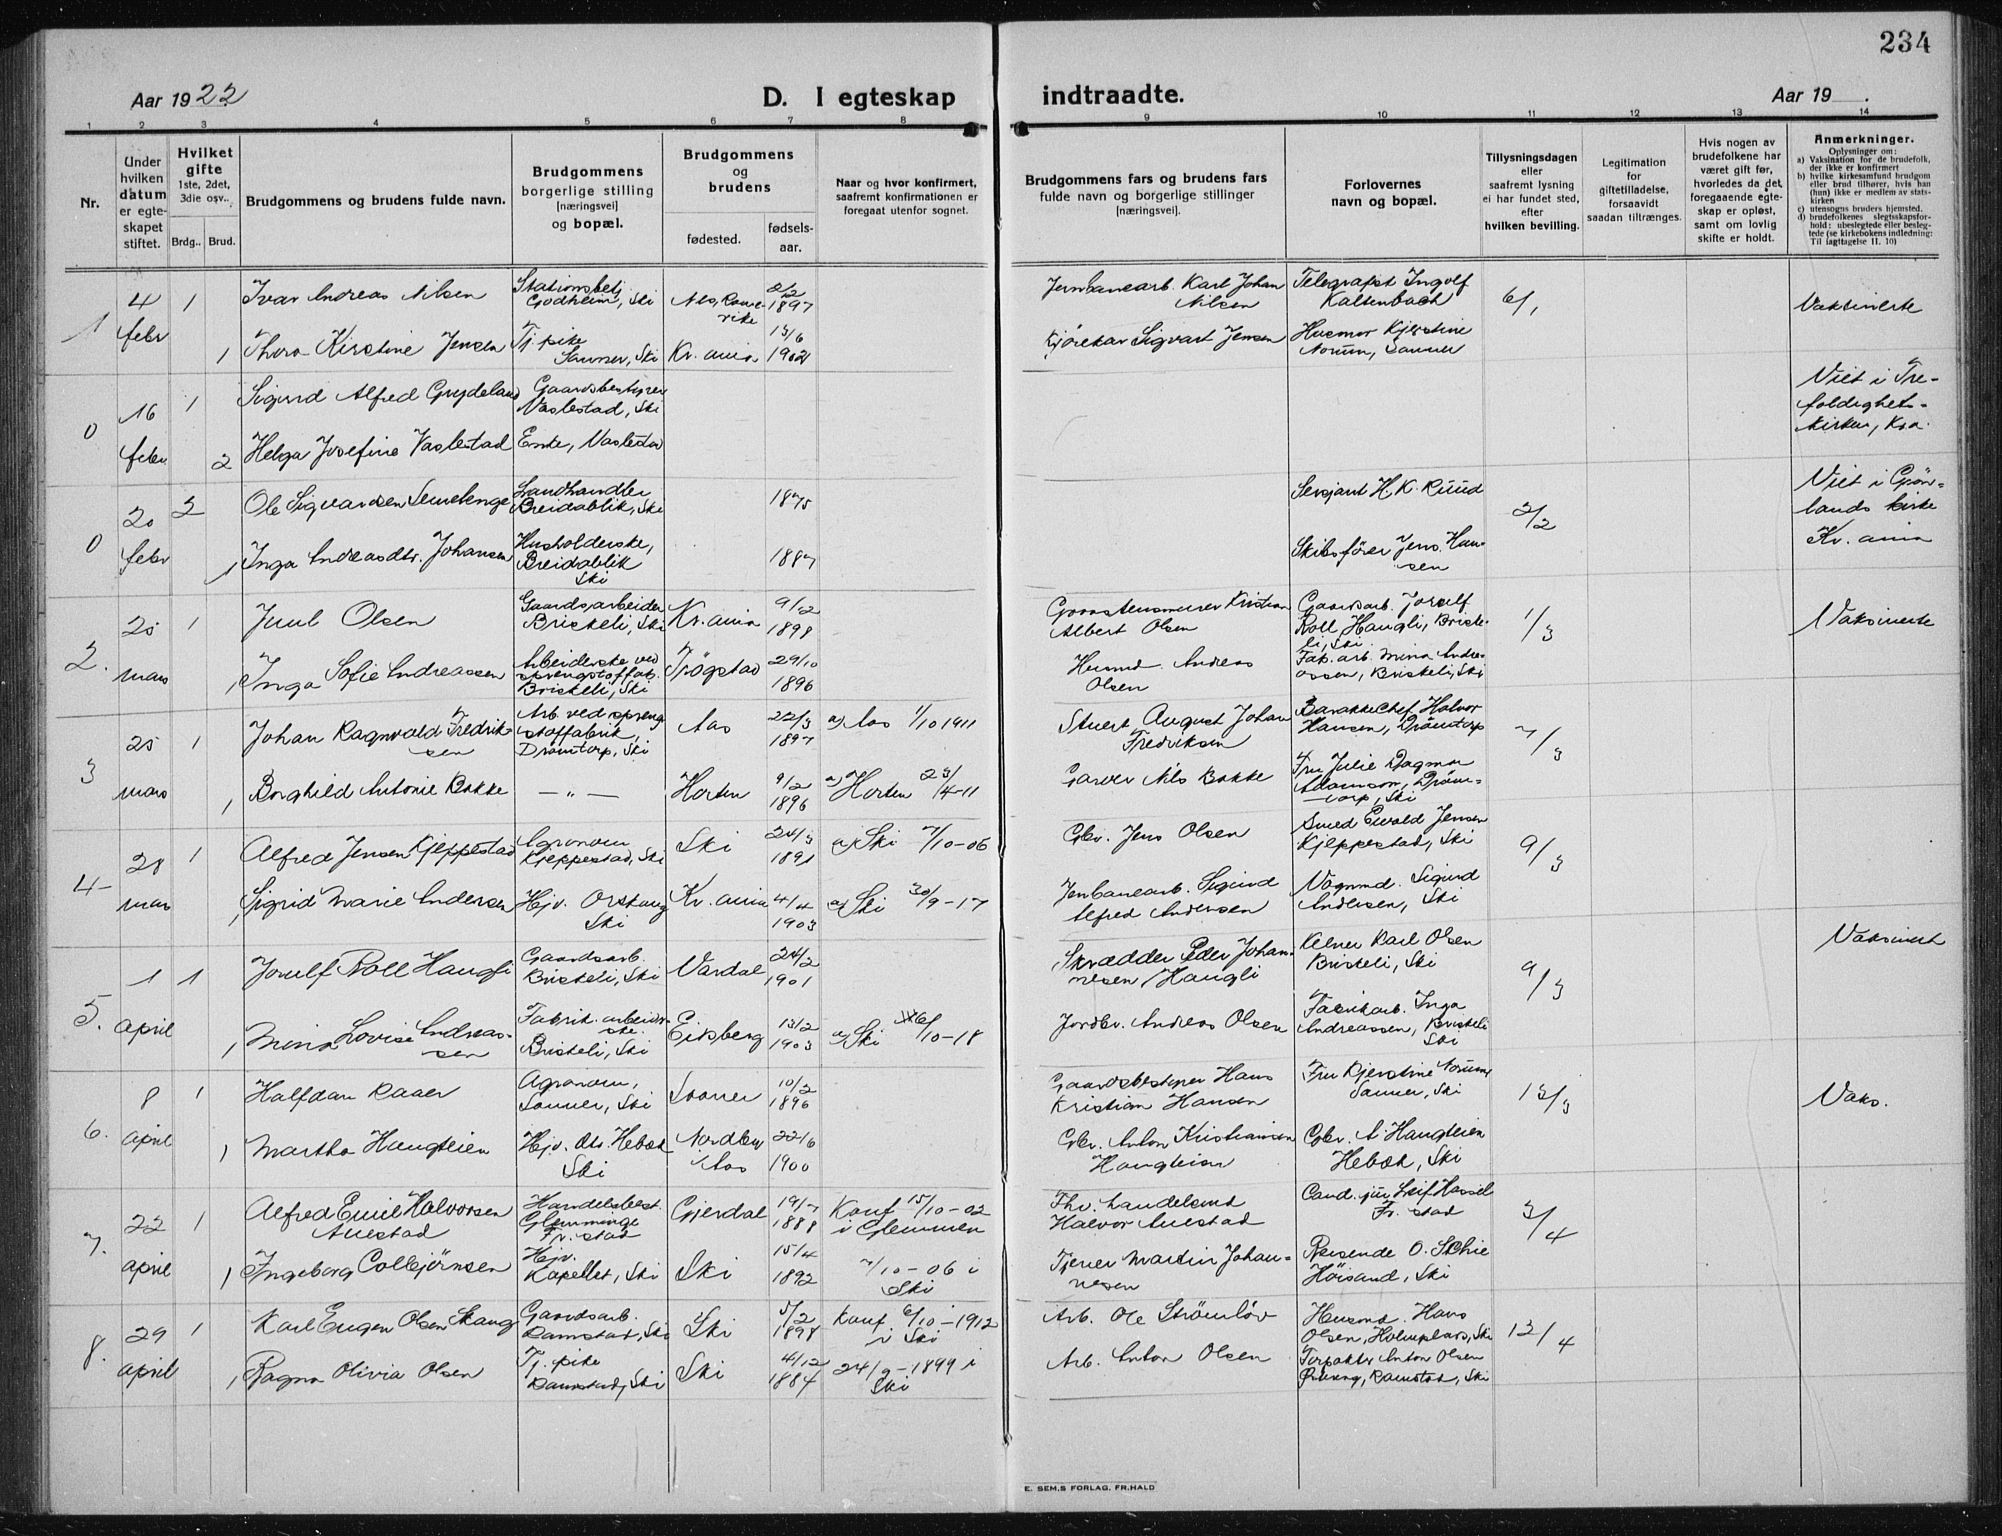 234
Aar 1922
D. I egteskap
indtraadte.
Aar 19 .
1 2 3 4 5 6 7 8 9 10 11 12 13 14
Nr.
Under hvilken datum er egteskapet stiftet.
Hvilket gifte 1ste, 2det, 3die osv..
Brdg.. Brud.
Brudgommens og brudens fulde navn.
Brudgommens borgerlige stilling [næringsvei] og bopæl.
Brudgommens og brudens
fødested.
fødselsaar.
Naar og hvor konfirmert, saafremt konfirmationen er foregaat utenfor sognet.
Brudgommens fars og brudens fars fulde navn og borgerlige stillinger [næringsvei].
Forlovernes navn og bopæl.
Tillysningsdagen eller saafremt lysning ei har fundet sted, efter hvilken bevilling.
Legitimation for giftetilladelse, forsaavidt saadan tiltrænges.
Hvis nogen av brudefolkene har været gift før, hvorledes da det foregaaende egteskap er opløst, samt om lovlig skifte er holdt.
Anmerkninger.
Oplysninger om:
a) Vaksination for de brudefolk, der ikke er konfirmert
b) hvilke kirkesamfund brudgom eller brud tilhører, hvis han (hun) ikke er medlem av statskirken
c) utensogns bruders hjemsted.
d) brudefolkenes slegtsskapsforhold: ubeslegtede eller beslegtede (se kirkebokens indledning: Til iagttagelse II. 10)
1 4 febr 1 Ivar Andreas Nilsen Stationsbetj. Godheim, Ski 2/2 1897 Jernbanearb. Karl Johan Nilsen Telegrafist Ingolf Kaltenbach 6/1 Vaksinerte
1 Thora Kirstine Jensen Tj. pike Sanner, Ski Kr.ania 13/6 1902 Kjørekar Sigvart Jensen Husmor Kjerstine Norum, Sanner
0 16 febr 1 Sigurd Alfred Grydeland Gaardsbestyrer Vaslestad, Ski Viet i Trefoldighetskirken, Kra.
2 Helga Josefine Vaslestad Enke, Vaslestad
0 20 febr 2 Ole Sigvardsen Landhandler Breidablik, Ski 1875 Sersjant H. K. Ruud 2/2 Viet i Grønlands kirke Kr.ania
1 Inga Andreasdtr. Johansen Husholderske, Breidablik Ski 1887 Skibsfører Jens Hansen
2. 25 mars 1 Juul Olsen Gaardsarbeider Briskeli, Ski Kr.ania 9/2 1898 Kristian Albert Olsen Gaardsarb. Jorulf Roll Haugli, Briskeli, Ski 1/3 Vaksinerte
1 Inga Sofie Andreassen Arbeiderske ved sprengstoffab. Briskeli, Ski Trøgstad 29/10 1896 Husmd. Andreas Olsen Fab.arb. Mina Andreassen, Briskeli, Ski
3 25 mars 1 Johan Ragnvald Fredriksen Arb. ved sprengstoffabrik, Drømtorp, Ski Aas 22/3 1897 a) Aas 1/10 1911 Stuert August Johan Fredriksen Barakkechef Halvor Hansen, Drømtorp 7/3
1 Borghild Antonie Bakke — " — Horten 9/2 1896 a) Horten 23/4-11 Garver Nils Bakke Fru Julie Dagmar Adamson, Drømtorp, Ski
4 28 mars 1 Alfred Jensen Kjeppestad Agronom Kjeppestad, Ski Ski 24/3 1891 a) Ski 7/10-06 Gbr. Jens Olsen Smed Ewald Jensen Kjeppestad, Ski 9/3
1 Sigrid Marie Andersen Hjv. Ski Kr.ania 4/4 1903 a) Ski 30/9-17 Jernbanearb. Sigurd Alfred Andersen Vognmd. Sigurd Andersen, Ski
5. 1 april 1 Jorulf Roll Haugli Gaardsarb. Briskeli, Ski Vardal 24/2 1901 Skrædder Peder Johannesen Haugli Kelner Karl Olsen Briskeli, Ski 9/3 Vaksinert
1 Mina Lovise Andreassen Fabrik.arbeiderske Briskeli, Ski Eidsberg 13/2 1903 a) Ski 6/10-18 Jordbr. Andreas Olsen Fabrikarb. Inga Andreassen, Briskeli Ski
6. 8 april 1 Halfdan Raaer Agronom, Sanner, Ski 10/2 1896 Gaardsbestyrer Hans Kristian Hansen Fru Kjerstine Norum Sanner, Ski 13/3 Vaks.
1 Martha Haugteien Hjv. Hebæk Ski Nordby i Aas 22/6 1900 Gbr. Anton Kristiansen Haugteien Gbr. A Haugteien Hebæk, Ski
7. 22 april 1 Alfred Emil Halvorsen Auestad Handelsbest. Glemminge Fr.stad Gjerdal 19/7 1888 Konf 15/10-02 i Glemmen Fhv. handelsmd Halvor Auestad Cand. jur Leif Hassel Fr.stad 3/4
1 Ingeborg Colbjørnsen Hjv. Kapellet, Ski Ski 15/4 1892 7/10-06 i Ski Tjener Martin Johannesen Reisende O. Schie Høisand, Ski
8. 29 april 1 Karl Eugen Olsen Skaug Gaardsarb. Ramstad, Ski Ski 5/2 1898 Konf 6/10-1912 i Ski Arb. Ole Strømløv Husmd. Hans Olsen, Holmplass, Ski 13/4
1 Ragna Olivia Olsen Tj. pike Ramstad, Ski Ski 4/12 1884 24/9-1899 i Ski Arb. Anton Olsen Forpakter Anton Olsen Ramstad, Ski
E. SEM.S FORLAG. FR.HALD